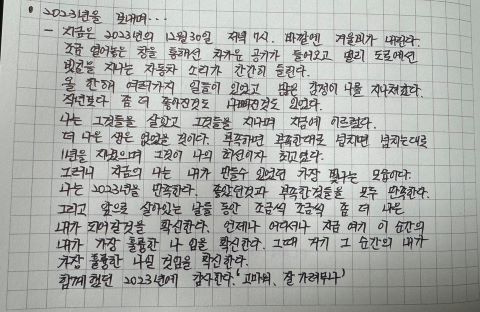 • 2023년을 보내며...
- 지금은 2023년의 12월30일 저녁 7시. 바깥엔 겨울비가 내린다.
조금 열어놓은 창을 통해선 차가운 공기가 들어오고 멀리 도로에선
빗길을 지나는 자동차 소리가 간간히 들린다.
올 한해 여러가지 일들이 있었고 많은 감정이 나를 지나쳐갔다.
작년보다 좀 더 좋아진것도 나빠진것도 있었다.
나는 그것들을 살았고 그것들을 지나며 지금에 이르렀다.
더 나은 생은 없었을 것이다. 부족하면 부족한대로 넘치면 넘치는대로
1년을 지냈으며 그것이 나의 최선이자 최고였다.
그러니 지금의 나는 내가 만들수 있었던 가장 빛나는 모습이다.
나는 2023년을 만족한다. 좋았던것과 부족한것들을 모두 만족한다.
그리고 앞으로 살아있는 날들 동안 조금씩 조금씩 좀 더 나은
내가 되어갈것을 확신한다. 언제나 어디서나 지금 여기 이 순간의
내가 가장 훌륭한 나 임을 확신한다. 그때 거기 그 순간의 내가
가장 훌륭한 나일 것임을 확신한다.
함께했던 2023년에 감사한다. '고마워, 잘가려무나'